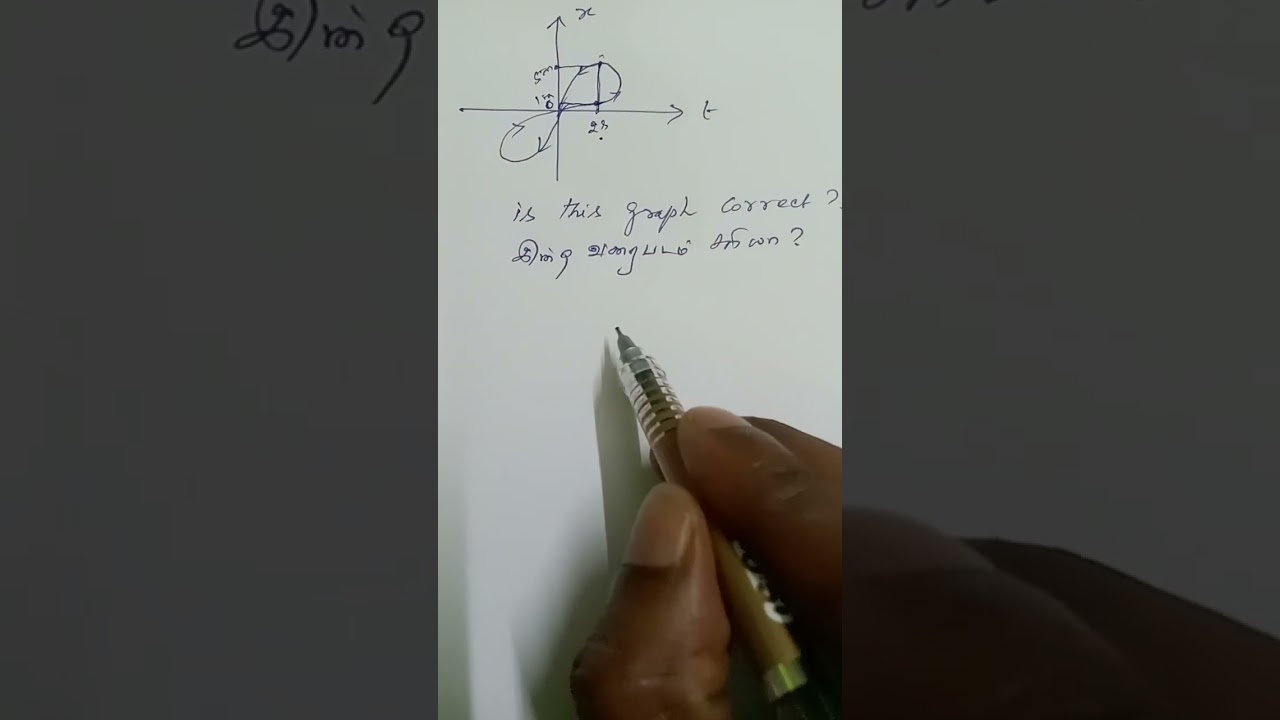 இந்த
x
5m
1m
0
t
2s
is this graph correct?
இந்த வரைபடம் சரியா?